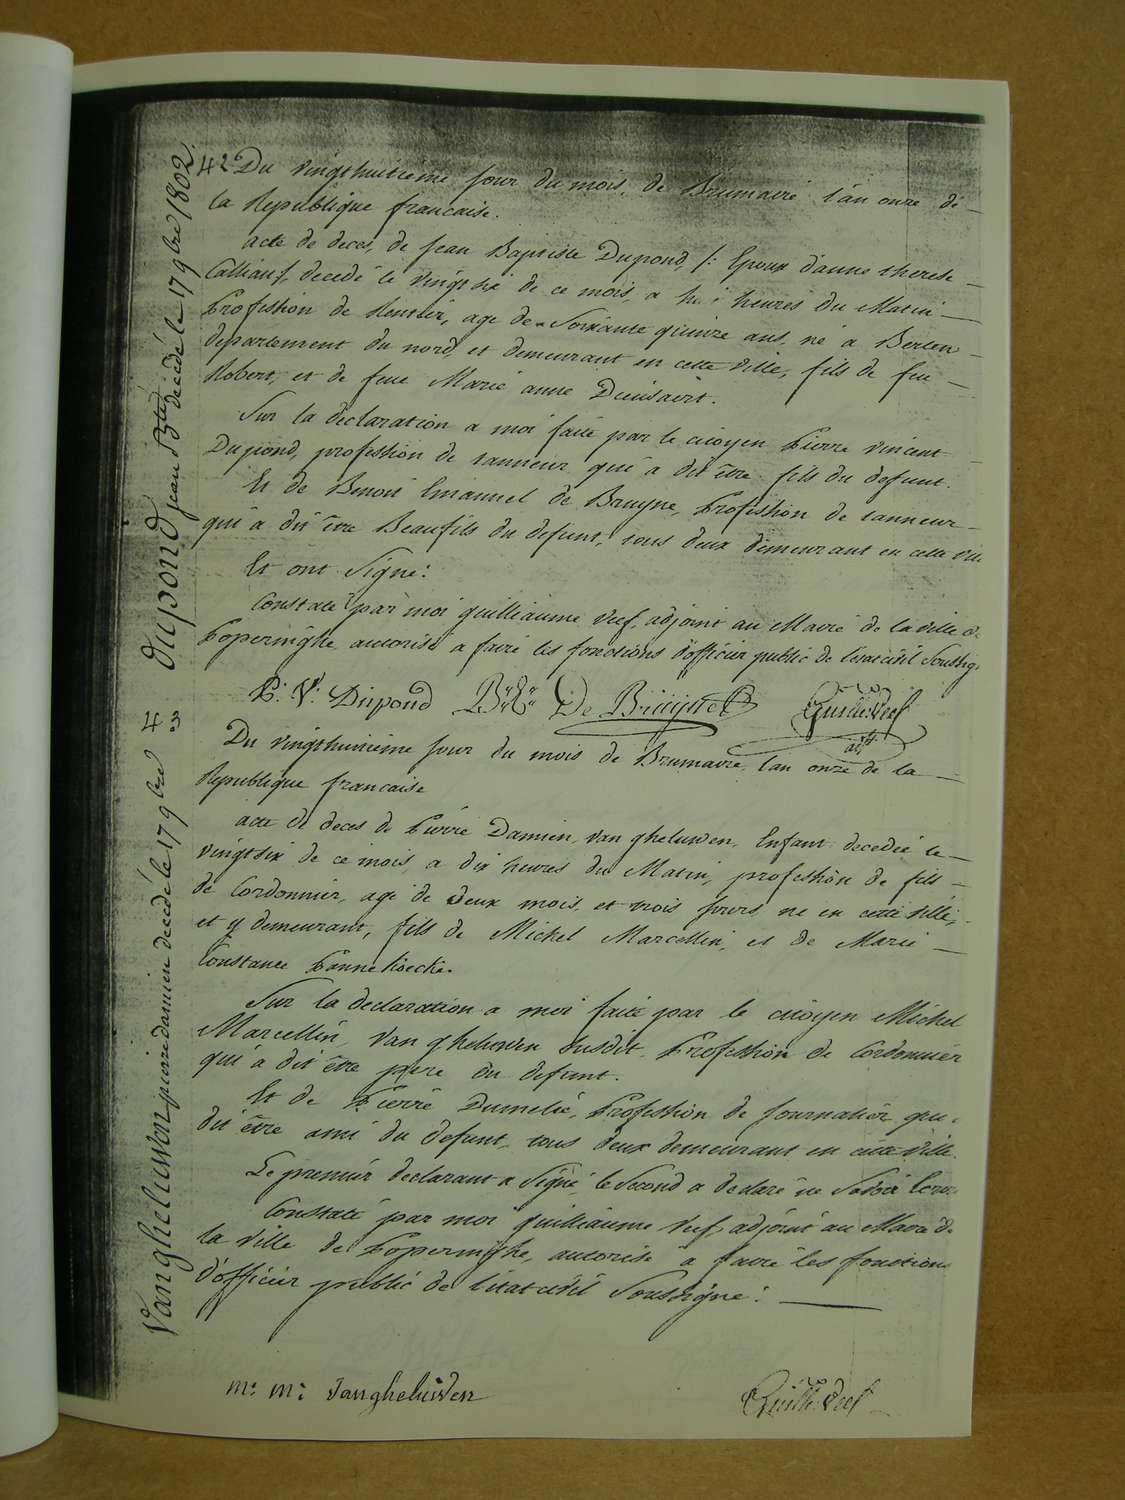 42 Du vingthuitieme jour du mois, de Brumaire l'an onze de
la Republique francaise.
acte de deces, de Jean Baptiste Dupond, /: Epoux d'anne therese
Calliau /, decedé le vingtsix de ce mois, a heures du Matin
Profession de Rentier, agé de Soixante quinze ans, né a Berten
departement du nord, et demeurant en cette ville, fils de feu
Robert, et de feue Marie anne
Sur la declaration a moi faite par le citoyen Pierre Vincent
Dupond, profession de tanneur qui a dit être fils du defunt.
Et de Benoit Emanuel de Bruyne, Profession de tanneur
qui a dit être Beaufils du defunt, tous deux demeurant en cette ville
Et ont Signé:
Constaté par moi guilliaume Veef, adjoint au Maire de la ville de
Poperinghe, autorisé a faire les fonctions d'officier public de l'etat civil Soussig.
P: V: Dupond B: E: De Bruijne Guill: Veef
adjt
Du vingthuitieme jour du mois de Brumaire l'an onze de la
Republique francaise
acte de deces de Pierre Damien van gheluwen, Enfant decedée le
vingtsix de ce mois, a dix heures du Matin, profession de fils
de Cordonnier, agé de deux mois, et trois jours, ne en cette ville,
et y demeurant, fils de Michel Marcellin, et de Marie
Constance Pannekoecke.
Sur la declaration a moi faite par le citoyen Michel
Marcellin, Van gheluwen susdit, Profession de Cordonnier
qui a dit être pere du defunt.
Et de Pierre Dumelie, Profession de Journalier, qui a
dit être ami du defunt, tous deux demeurant en cette ville.
Le premier declarant a Signé, le Second a declaré ne Savoir Ecrir
Constaté par moi guilliaume Veef, adjoint au Maire de
la ville de Poperinghe, autorisé a faire les fonctions
d'officier public de l'etat civil Soussigné:
m: m: Vangheluwen Guill: Veef
dupond jean Btte decedé le 17 9bre 1802.
43
Vangheluwen pierre damien decedé le 17 9bre